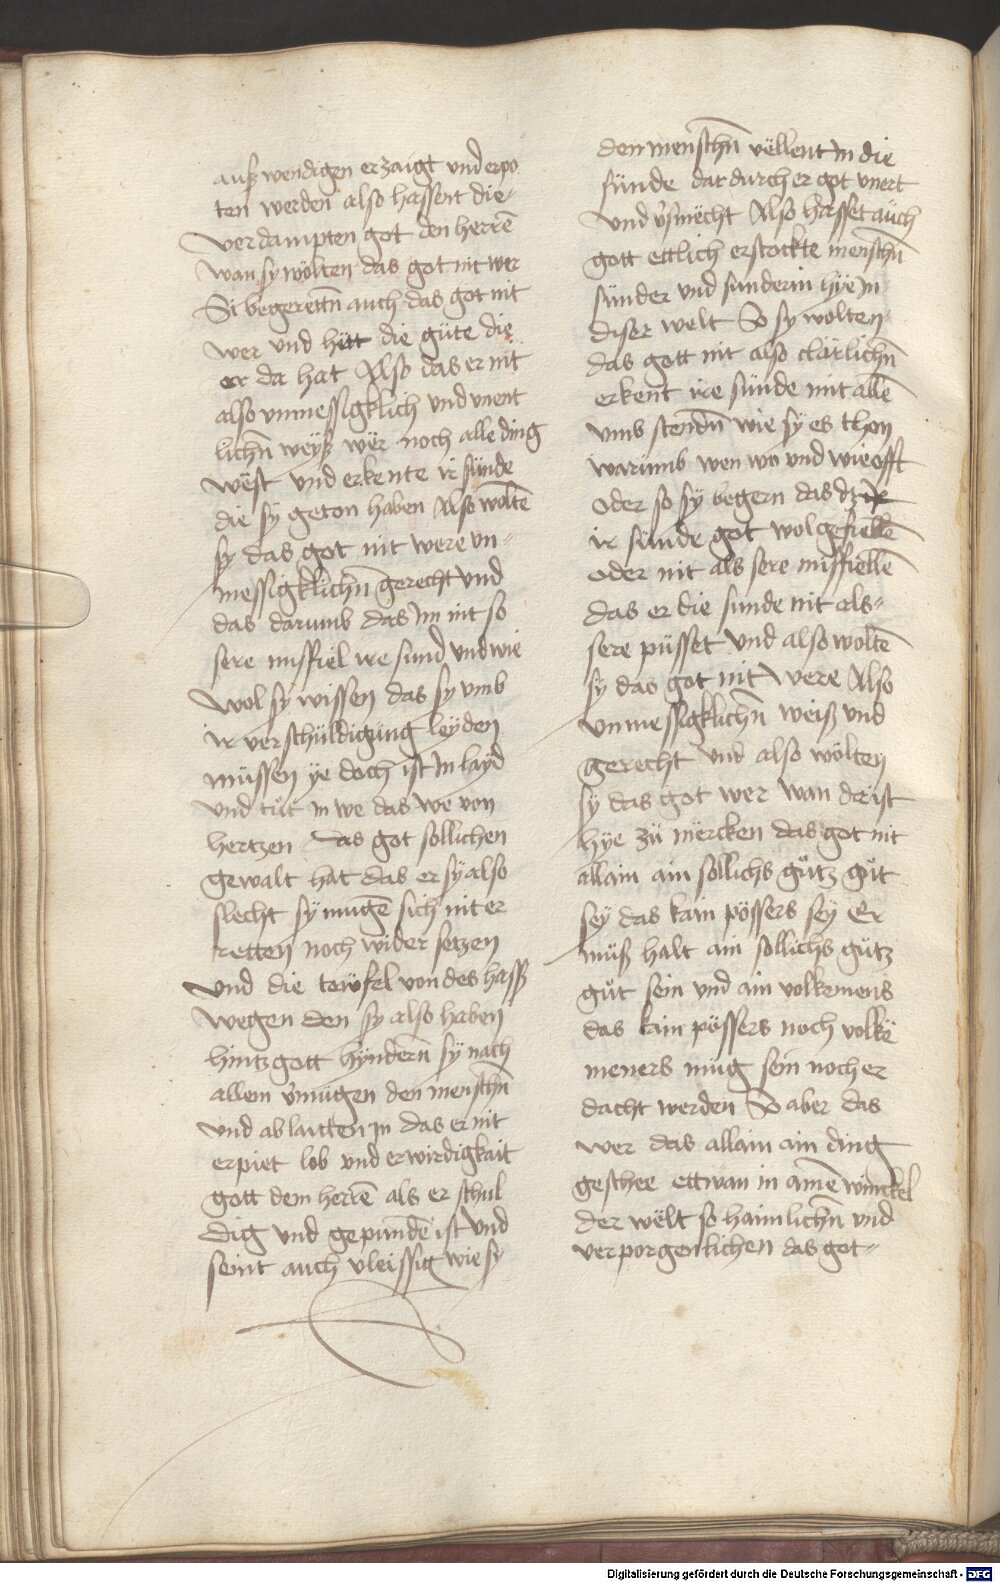 ausswendigen erzaigt vnd erpo
ten werden also hassent die
verdampten got den herrē
wan sy wölten das got nit wer
Si begerettn̄ auch das got nit
wer vnd hätt die güte die
er da hat Also das er nit
also vnmessigklich vnd vnent
lichn̄ weyß wër noch alle ding
wëst vnd erkente ir sünde
die sÿ geton haben Also woltē
sy das got nit were vn-
messigklichn̄ gerecht vnd
das darumb das im nit so
sere missfiel ire sund vnd wie
wol sy wissen das sy vmb
ir verschuldigung leyden
müssen ye doch ist in layd
vnd tüt in we das we von
hertzen das got sollichen
gewalt hat das er sÿ also
slecht sy mugē sich nit er
retten noch wider setzen
vnd die tewfel von des hass
wegen den sy also haben
hintz gott hyndern̄ sÿ nach
allem v̄mügen den menschn̄
vnd ablaitten in das er nit
erpiet lob vnd erwirdigkait
gott dem herrē als er schul
dig vnd gepundē ist vnd
seint auch vleissig wie sy
den menschn̄ vëllent in die
sünde dardurch er got vnert
vnd v̄smëcht Also hasset auch
gott ettlich erstockte menschn̄
sünder vnd sunderin hÿe in
diser welt So sy wolten
das gott nit also clärlichn̄
erkent ire sünde mit allē
vmb stendn̄ wie sÿ es thon
warumb wen wo vnd wie offt
oder so sÿ begern das dz
ir sünde got wolgefiellē
oder nit als sere missfiellē
das er die sunde nit als-
sere püsset vnd also woltē
sÿ das got nit were Also
vnmessigklichn̄ weiß vnd
gerecht vnd also wölten
sÿ das got wer wan da ist
hÿe zü mërcken das got nit
allain ain sollichs gütz güt
seÿ das kain pössers sey Er
müß halt ain sollichs gütz
güt sein vnd ain volkomens
das kain pössers noch volkē
meners müg sein noch er
dacht werden So aber das
wer das allain ain ding
geschee ettwan in ainē winckel
der wëlt so haimlichn̄ vnd
verporgenlichen das got-
Digitalisierung gefördert durch die Deutsche Forschungsgemeinschaft - DFG